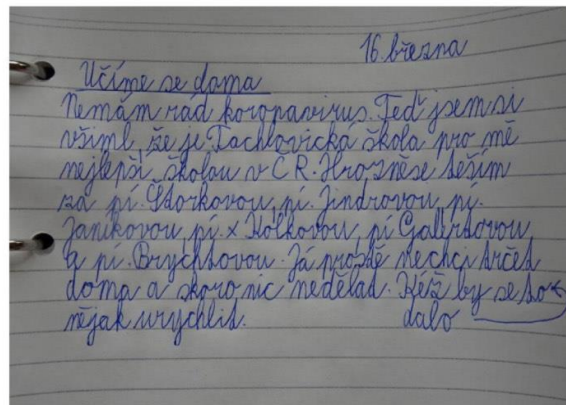 16. března
Učíme se doma
Nemám rád koronavirus. Teď jsem si
všiml, že je Tachlovická škola pro mě
nejlepší školou v ČR. Hrozně se těším
za pí. Štorkovou, pí. Jindrovou, pí.
Janíkovou, pí. x Holkovou, pí Gallertovou
a pí. Brychtovou. Já prostě nechci trčet
doma a skoro nic nedělat. Kéž by se to
nějak urychlit. dalo